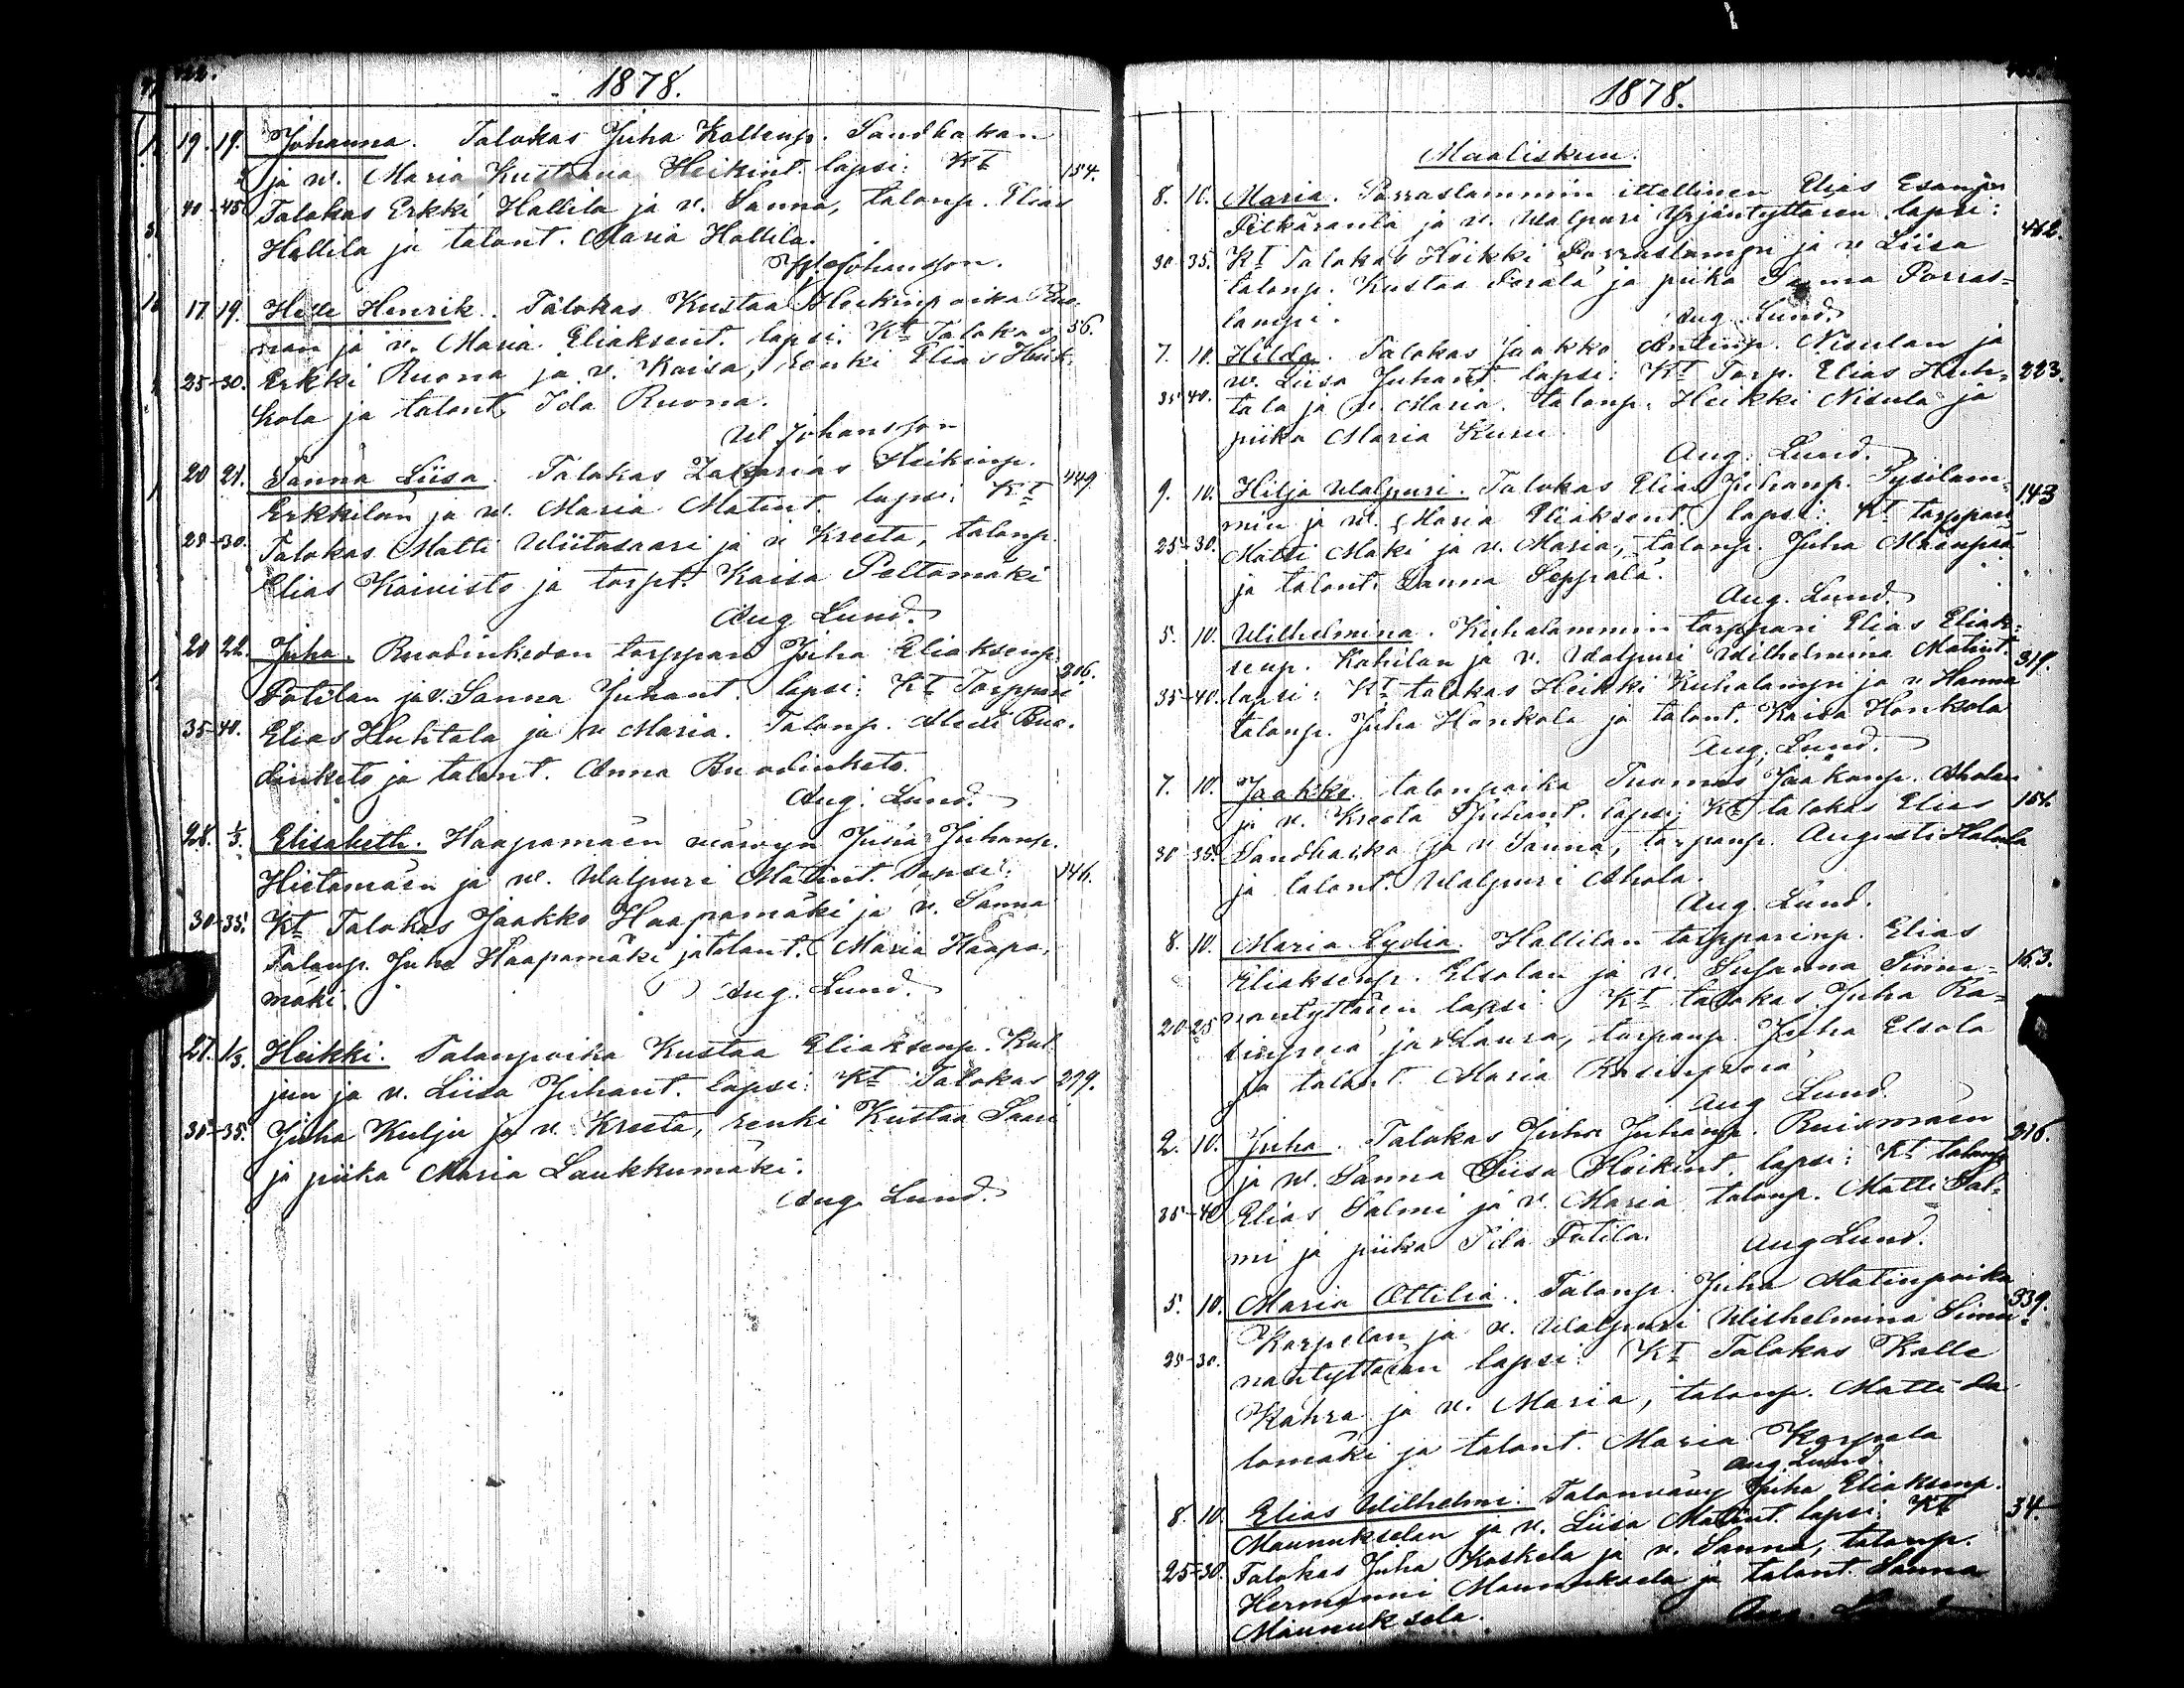 1878.
19. 19. Johanna. Talokas Juha Kallenp. Sandhakan
ja w. Maria Kustaava Heikint. lapsi: Kt 154.
40-45 Talokas Erkki Hallila ja v. Sanna, talonp. Elias
Hallila ja talont. Maria Hallila.
W. Johansson.
17. 19. Henrik. Talokas Kustaa Heikinpoika Ruo-
nan ja v. Maria Eliaksent. lapsi: Kt Talokas 56.
25-30. Erkki Ruona ja v. Kaisa, renki Elias
kola ja talont. Ida Ruona.
W Johansson
20 24. Sanna Liisa. Talokas Zakarias Heikinp.
Erkkilän ja w. Maria Matint. lapsi: Kt 449.
25-30. Talokas Matti Wiitasaari ja v Kreeta, talonp.
Elias Koivisto ja torpt. Kaisa Peltomäki
Aug Lund.
20 22. Juha. Ruodinkedon torppari Juha Eliaksenp.
Potilan ja v. Sanna Juhant. lapsi: Kt Torppari 206.
35-40. Elias Huhtala ja v Maria. Talonp. Aleksi Ruo-
dinketo ja talont. Anna Ruodinketo.
Aug. Lund.
28. 1/3. Elisabeth. Haapamäen wäwyn Juha Juhanp.
Hietamäen ja w. Walpuri Matint. lapsi: 146.
30-35. Kt Talokas Jaakko Haapamäki ja v. Sanna
Talonp. Juha Haapamäki ja talont. Maria Haapa-
mäki.
Aug. Lund.
27. 1/3. Heikki. Talonpoika Kustaa Eliaksenp. Kul-
jun ja v. Liisa Juhant. lapsi: Kt Talokas 279.
30-35. Juha Kulju ja v. Kreeta, renki Kustaa Saari
ja piika Maria Laukkumäki.
Aug. Lund.
1878.
Maaliskuu.
8. 10. Maria. Porraslammin itellinen Elias Esanp.
Pitkäranta ja v. Walpuri Yrjäntyttären lapsi: 462.
30 35. Kt Talokas Heikki Porraslampi ja v Liisa
talonp. Kustaa Perälä ja piika Sanna Porras-
lampi.
Aug. Lund.
7. 10. Hilda. Talokas Jaakko Antinp. Nisulan ja
w. Liisa Juhant. lapsi: Kt Torp. Elias Huh- 223.
35 40. tala ja v. Maria. talonp. Heikki Nisula ja
piika Maria Kuru
Aug. Lund.
9. 10. Hilja Walpuri. Talokas Elias Juhanp. Pysilam-
min ja w. Maria Eliaksent. lapsi: Kt torppari 143
25-30. Matti Mäki ja v. Maria, talonp. Juha Mäenpää
ja talont. Sanna Seppälä.
Aug. Lund.
5. 10. Wilhelmina. Kuhalammin torppari Elias Eliak-
senp. Kahilan ja v. Walpuri Wilhelmina Matint. 319.
35-40. lapsi: Kt talokas Heikki Kuhalampi ja v Hanna
talonp. Juha Honkola ja talont. Kaisa Honkola
Aug. Lund.
7. 10. Jaakko. talonpoika Tuomas Jaakonp. Aholan
ja v. Kreeta Juhant. lapsi: Kt talokas Elias 154.
30-35. Sandhakka ja v Sanna, torpanp. Augusti
ja talont. Walpuri Ahola.
Aug. Lund.
8. 10. Maria Lydia. Hallilan torpparinp. Elias
Eliaksenp. Elsalan ja v. Susanna Simu- 163.
20-25 nantyttären lapsi Kt talokas Juha Ra-
sinperä ja v Laura, torpanp. Juha Elsala
ja talont. Maria Rasinperä
Aug Lund.
2. 10. Juha. Talokas Juho Juhanp. Ruismäen 216.
ja w. Sanna Liisa Heikint. lapsi: Kt talonp
35-40 Elias Salmi ja v. Maria talonp. Matti Sal-
mi ja piika Potila.
Aug Lund.
5. 10. Maria Ottilia. Talonp. Juha Matinpoika
Korpelan ja v. Walpuri Wilhelmina Simu- 339.
25-30. nantyttären lapsi: Kt Talokas Kalle
Kahra ja v. Maria, talonp. Matti Sa-
lomäki ja talont. Maria Korpela
Aug. Lund.
8. 10. Elias Wilhelmi. Talonwäwy Juha Eliaksenp.
Maunukselan ja v. Liisa Matint. lapsi: Kt 34.
25-30. Talokas Juha Koskela ja v. Sanna, talonp.
Hermanni Maunuksela ja talont. Sanna
Maunuksela.
Aug. Lund